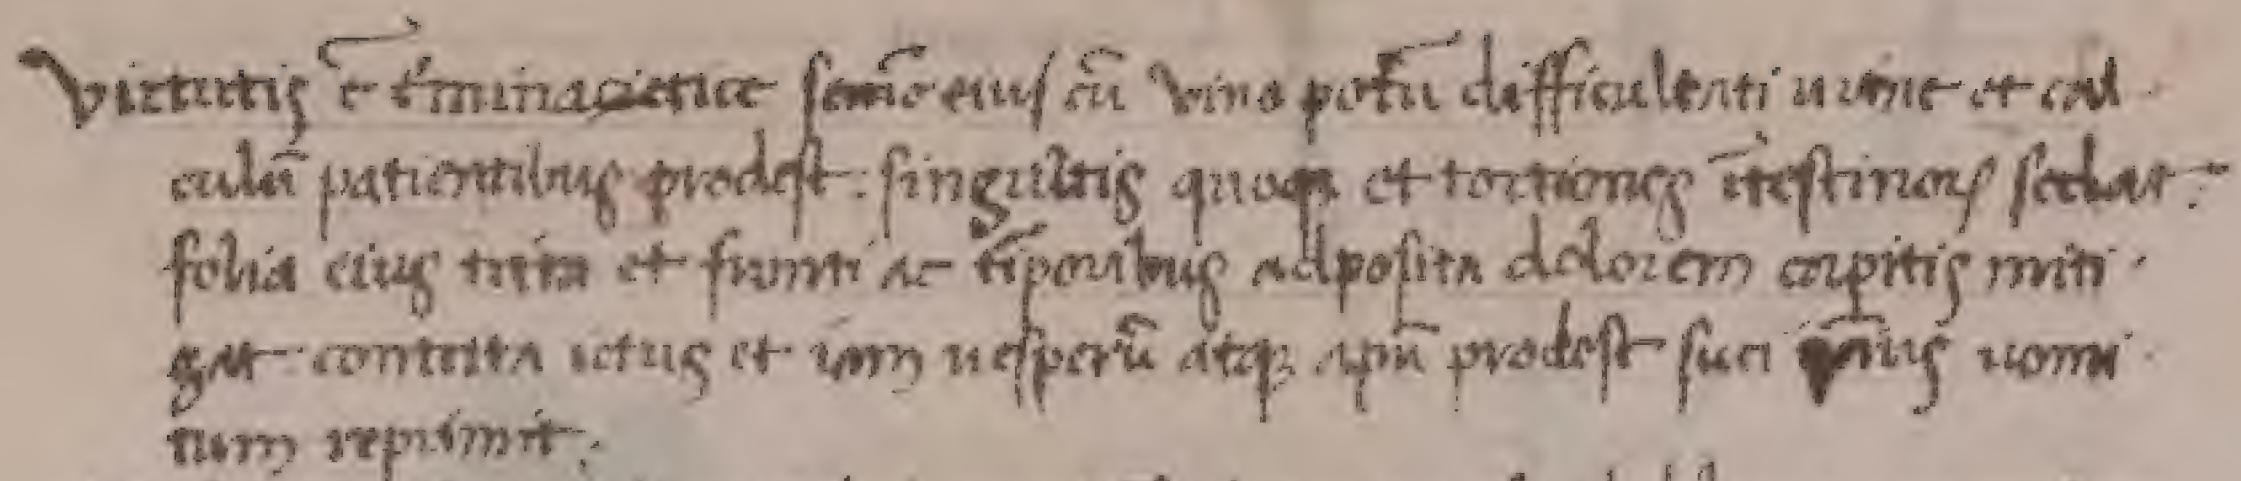 Virtutis ē t'minacietice semē eius cū vino potū difficultati urine et cal
culū patientibus prodest: singultis quoq; et tortiones ītestinoꝝ sedat:
folia eius trita et fronti ac tīporibus adposita dolorem capitis miti
gat contrita ictus et iam uesperū atq; apū prodest suci uomi
tum reprimit: